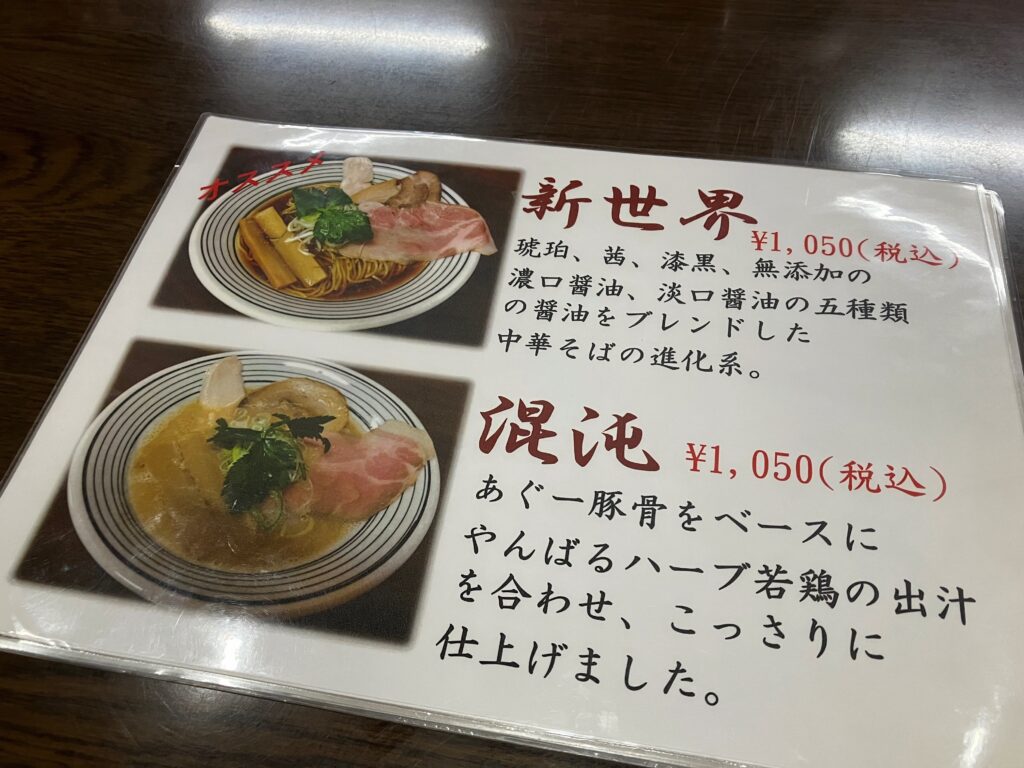 オススメ
新世界
¥1,050(税込)
琥珀、茜、漆黒、無添加の
濃口醤油、淡口醤油の五種類
の醤油をブレンドした
中華そばの進化系。
混沌
¥1,050(税込)
あぐー豚骨をベースに
やんばるハーブ若鶏の出汁
を合わせ、こっさりに
仕上げました。